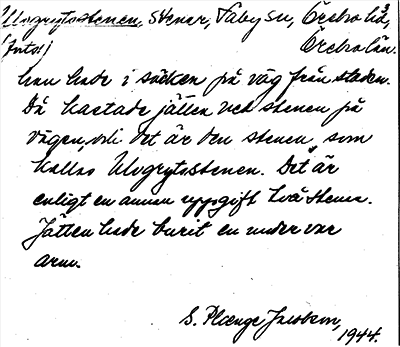 Ulogrytsstenen, stenar, Täby sn, Örebro hd,
(Forts.) Örebro län.
han hade i säcken på väg från staden.
Då kastade jätten ned stenen på
vägen, och det är den stenen, som
kallas Ulogrytsstenen. Det är
enligt en annan uppgift två stenar.
Jätten hade burit en under var
arm.
S. Plænge Jacobson,
1944.